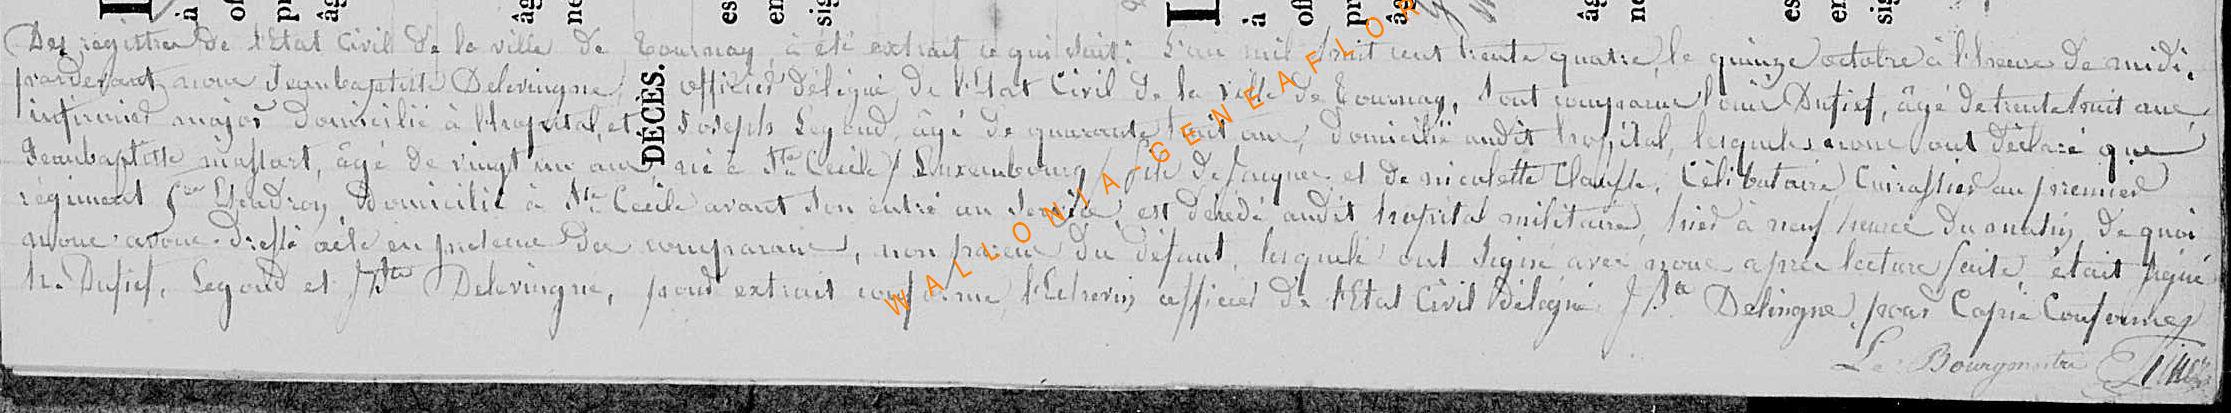 Des régistres de l'Etat Civil de la ville de Tournay, à été extrait ce qui suit: L'an mil huit cent trente quatre, le quinze octobre à l'heure de midi.
pardevant nous Jeanbaptiste Delevingne, officier délégué de l'Etat Civil de la ville de Tournay, sont comparus Louis Dufief, âgé de trente huit ans,
infirmier major domicilié à l'hopital, et Joseph Legoud, âgé de quarante huit ans, domicilié audit hopital, lesquels nous ont déclaré que
Jeanbaptiste massart, âgé de vingt un ans, né à Ste Cecile / Luxembourg / fils de Jacques et de nicolette Claisse, Célibataire, Cuirassier au premier
régiment Escadron, domicilié à Ste Cecile avant son entré au service, est décédé audit hopital militaire, hier à neuf heures du matin, de quoi
nous avons dressé acte en présence des comparans, non parens du défunt, lesquels ont signé avec nous après lecture faite, était signé
Dufief, Legoud et Jbte Delevingne, pour extrait conforme l'Echevin officier de l'Etat Civil délégué Delevingne, pour Copie Conforme
Le Bourgmestre
DÉCÈS.
WALLONIA-GENEAFLOR